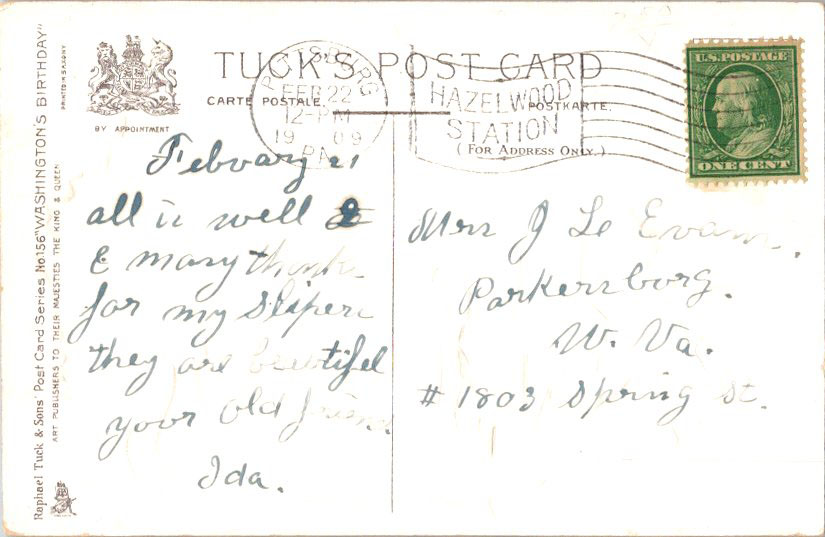 TUCK'S POST CARD
CARTE POSTALE.
POSTKARTE.
(FOR ADDRESS ONLY.)
BY APPOINTMENT
PITTSBURG
FEB 22
12-PM
1909
PA.
HAZELWOOD
STATION
U.S. POSTAGE
ONE CENT
Raphael Tuck & Sons' Post Card Series No. 156 "WASHINGTON'S BIRTHDAY"
PRINTED IN SAXONY
ART PUBLISHERS TO THEIR MAJESTIES THE KING & QUEEN
Febuary 21
all is well
& many thanks
for my slipers
they are beautifel
your old friend
Ida.
Mrs J Le Evans.
Parkersburg.
W. Va.
# 1803 Spring St.